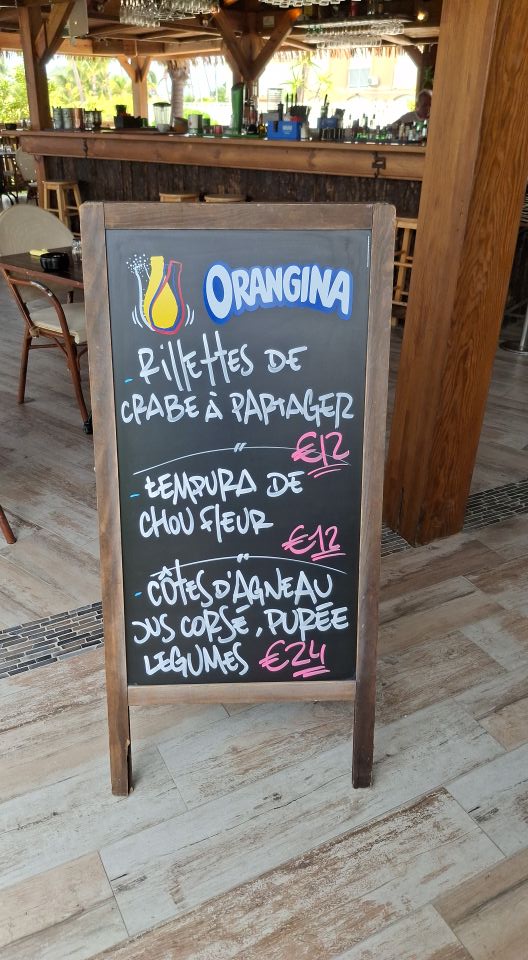 ORANGINA
- Rillettes de
crabe à partager
€12
- tempura de
chou fleur
€12
- côtes d'agneau
jus corsé, purée
legumes €24